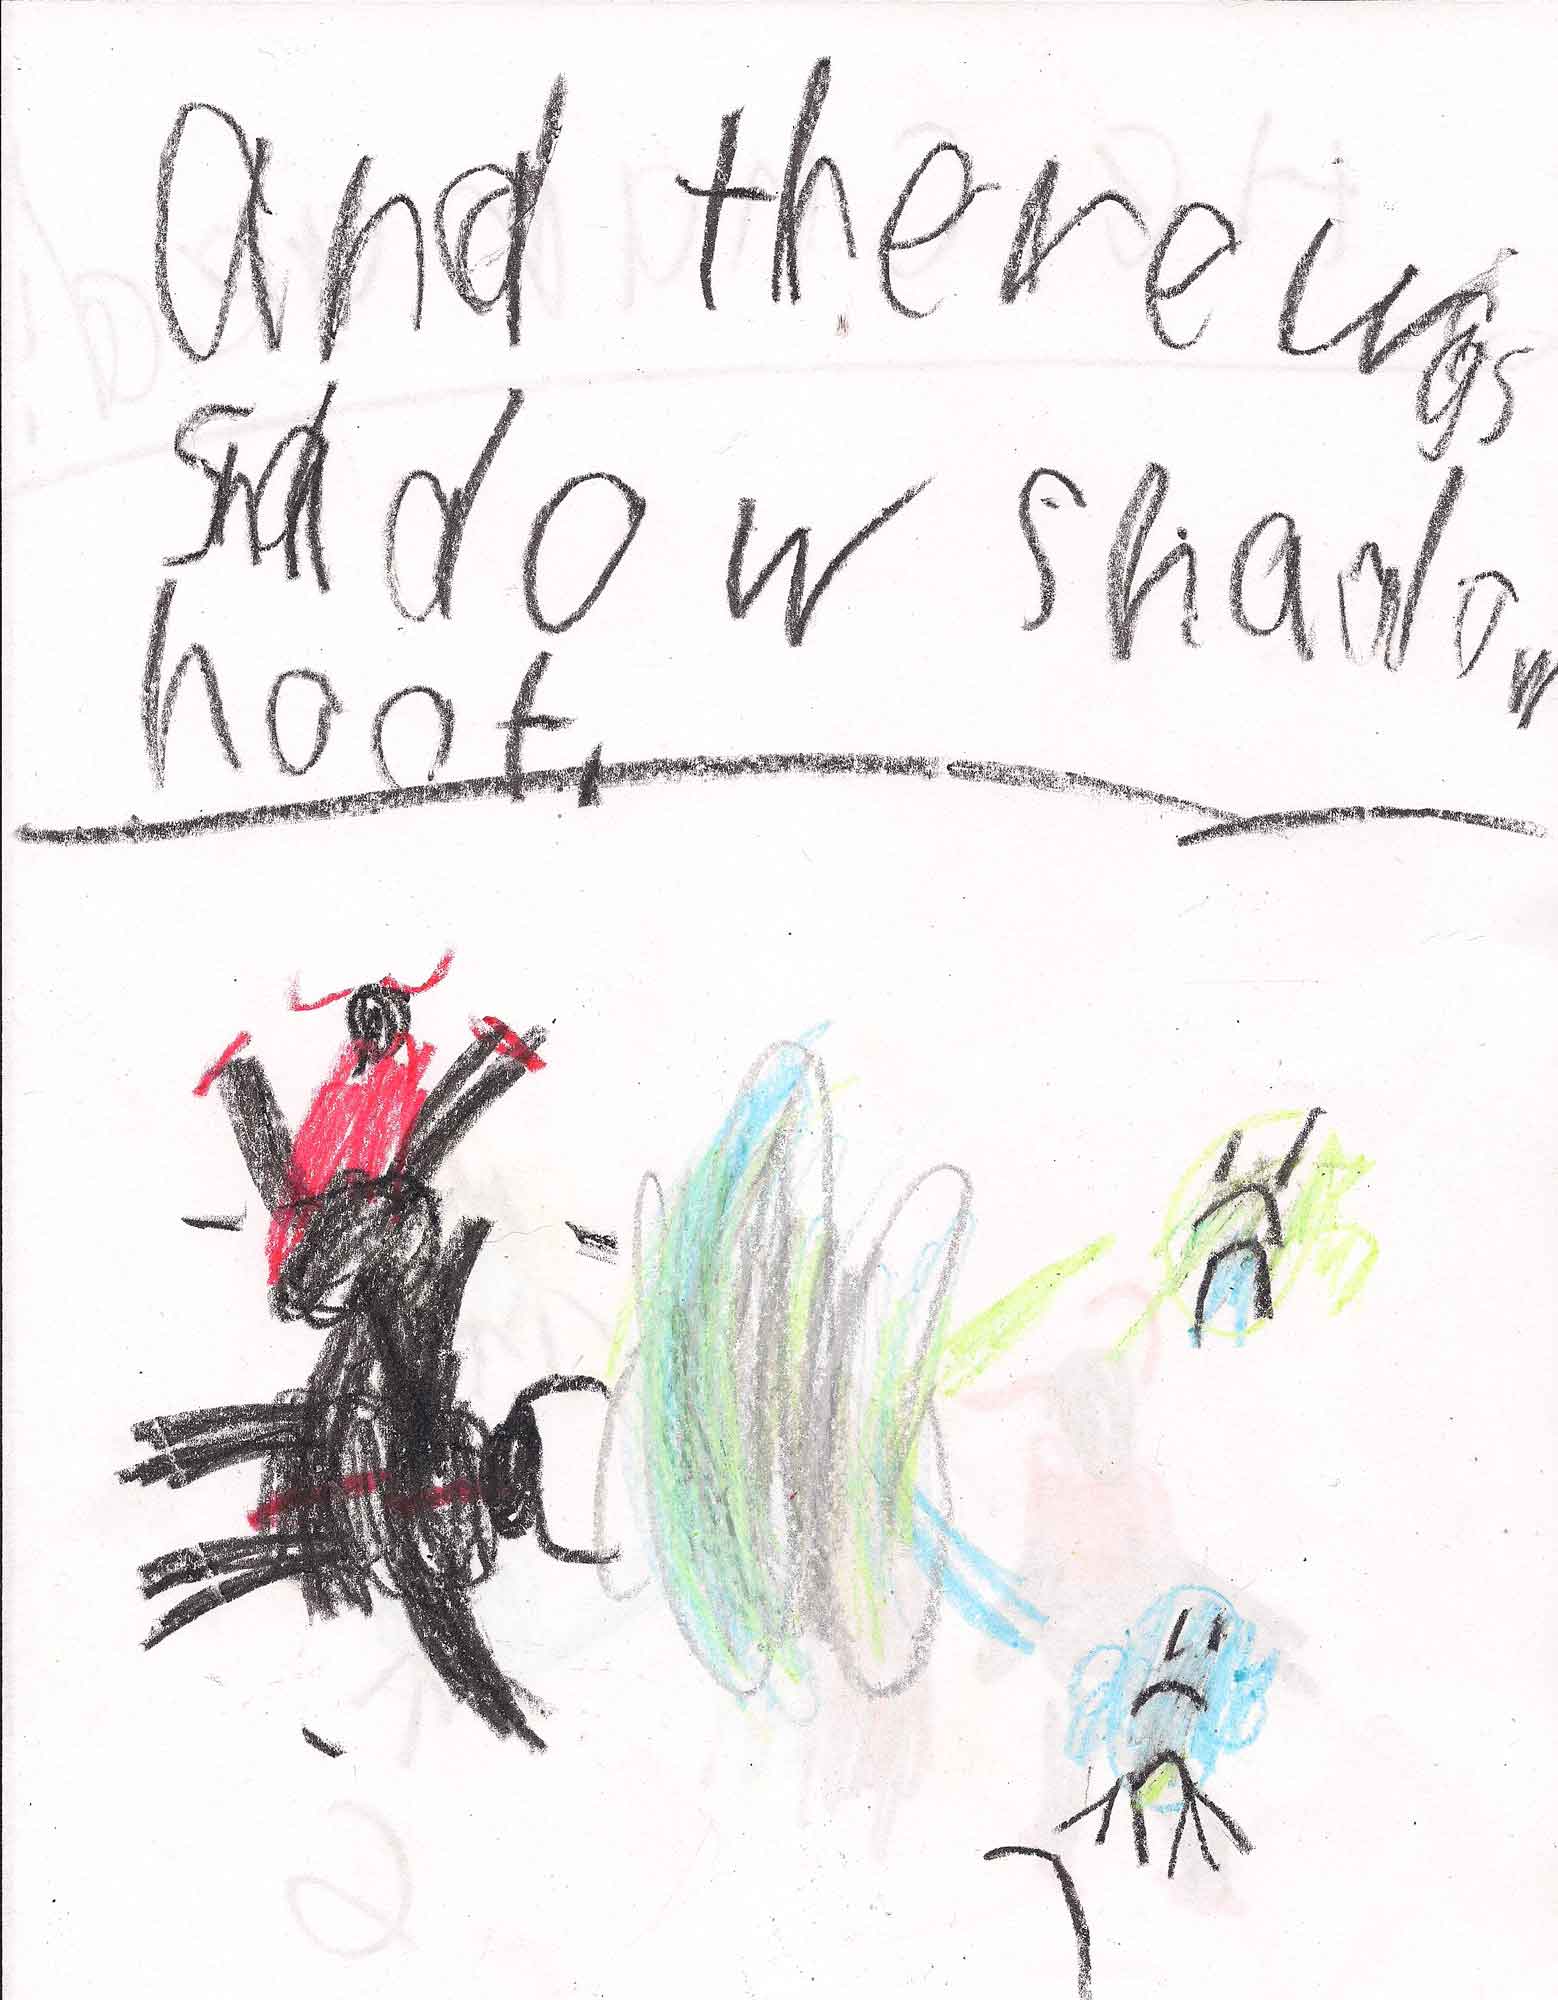 and there was
shadow shadow
hoot.